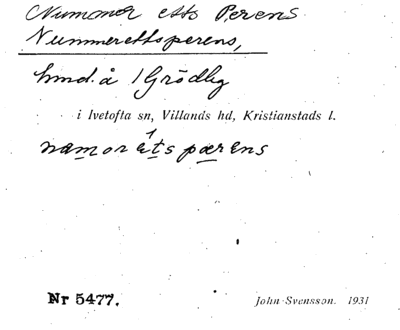 Nummer etts Perens
Nummerettsperens,
hmd. å 1 Grödby
i Ivetofta sn, Villands hd, Kristianstads l.
namor ets pærens
Nr 5477.
John Svensson. 1931